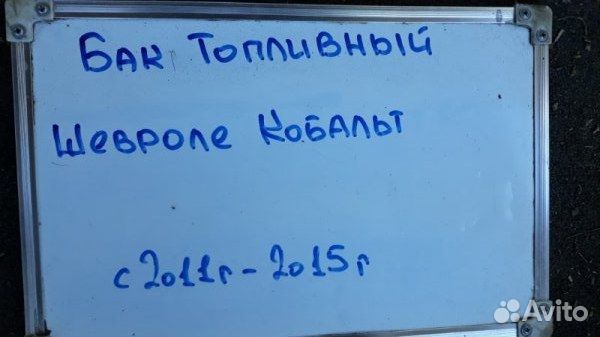 Бак Топливный
Шевроле Кобальт
с 2011г - 2015г
Avito